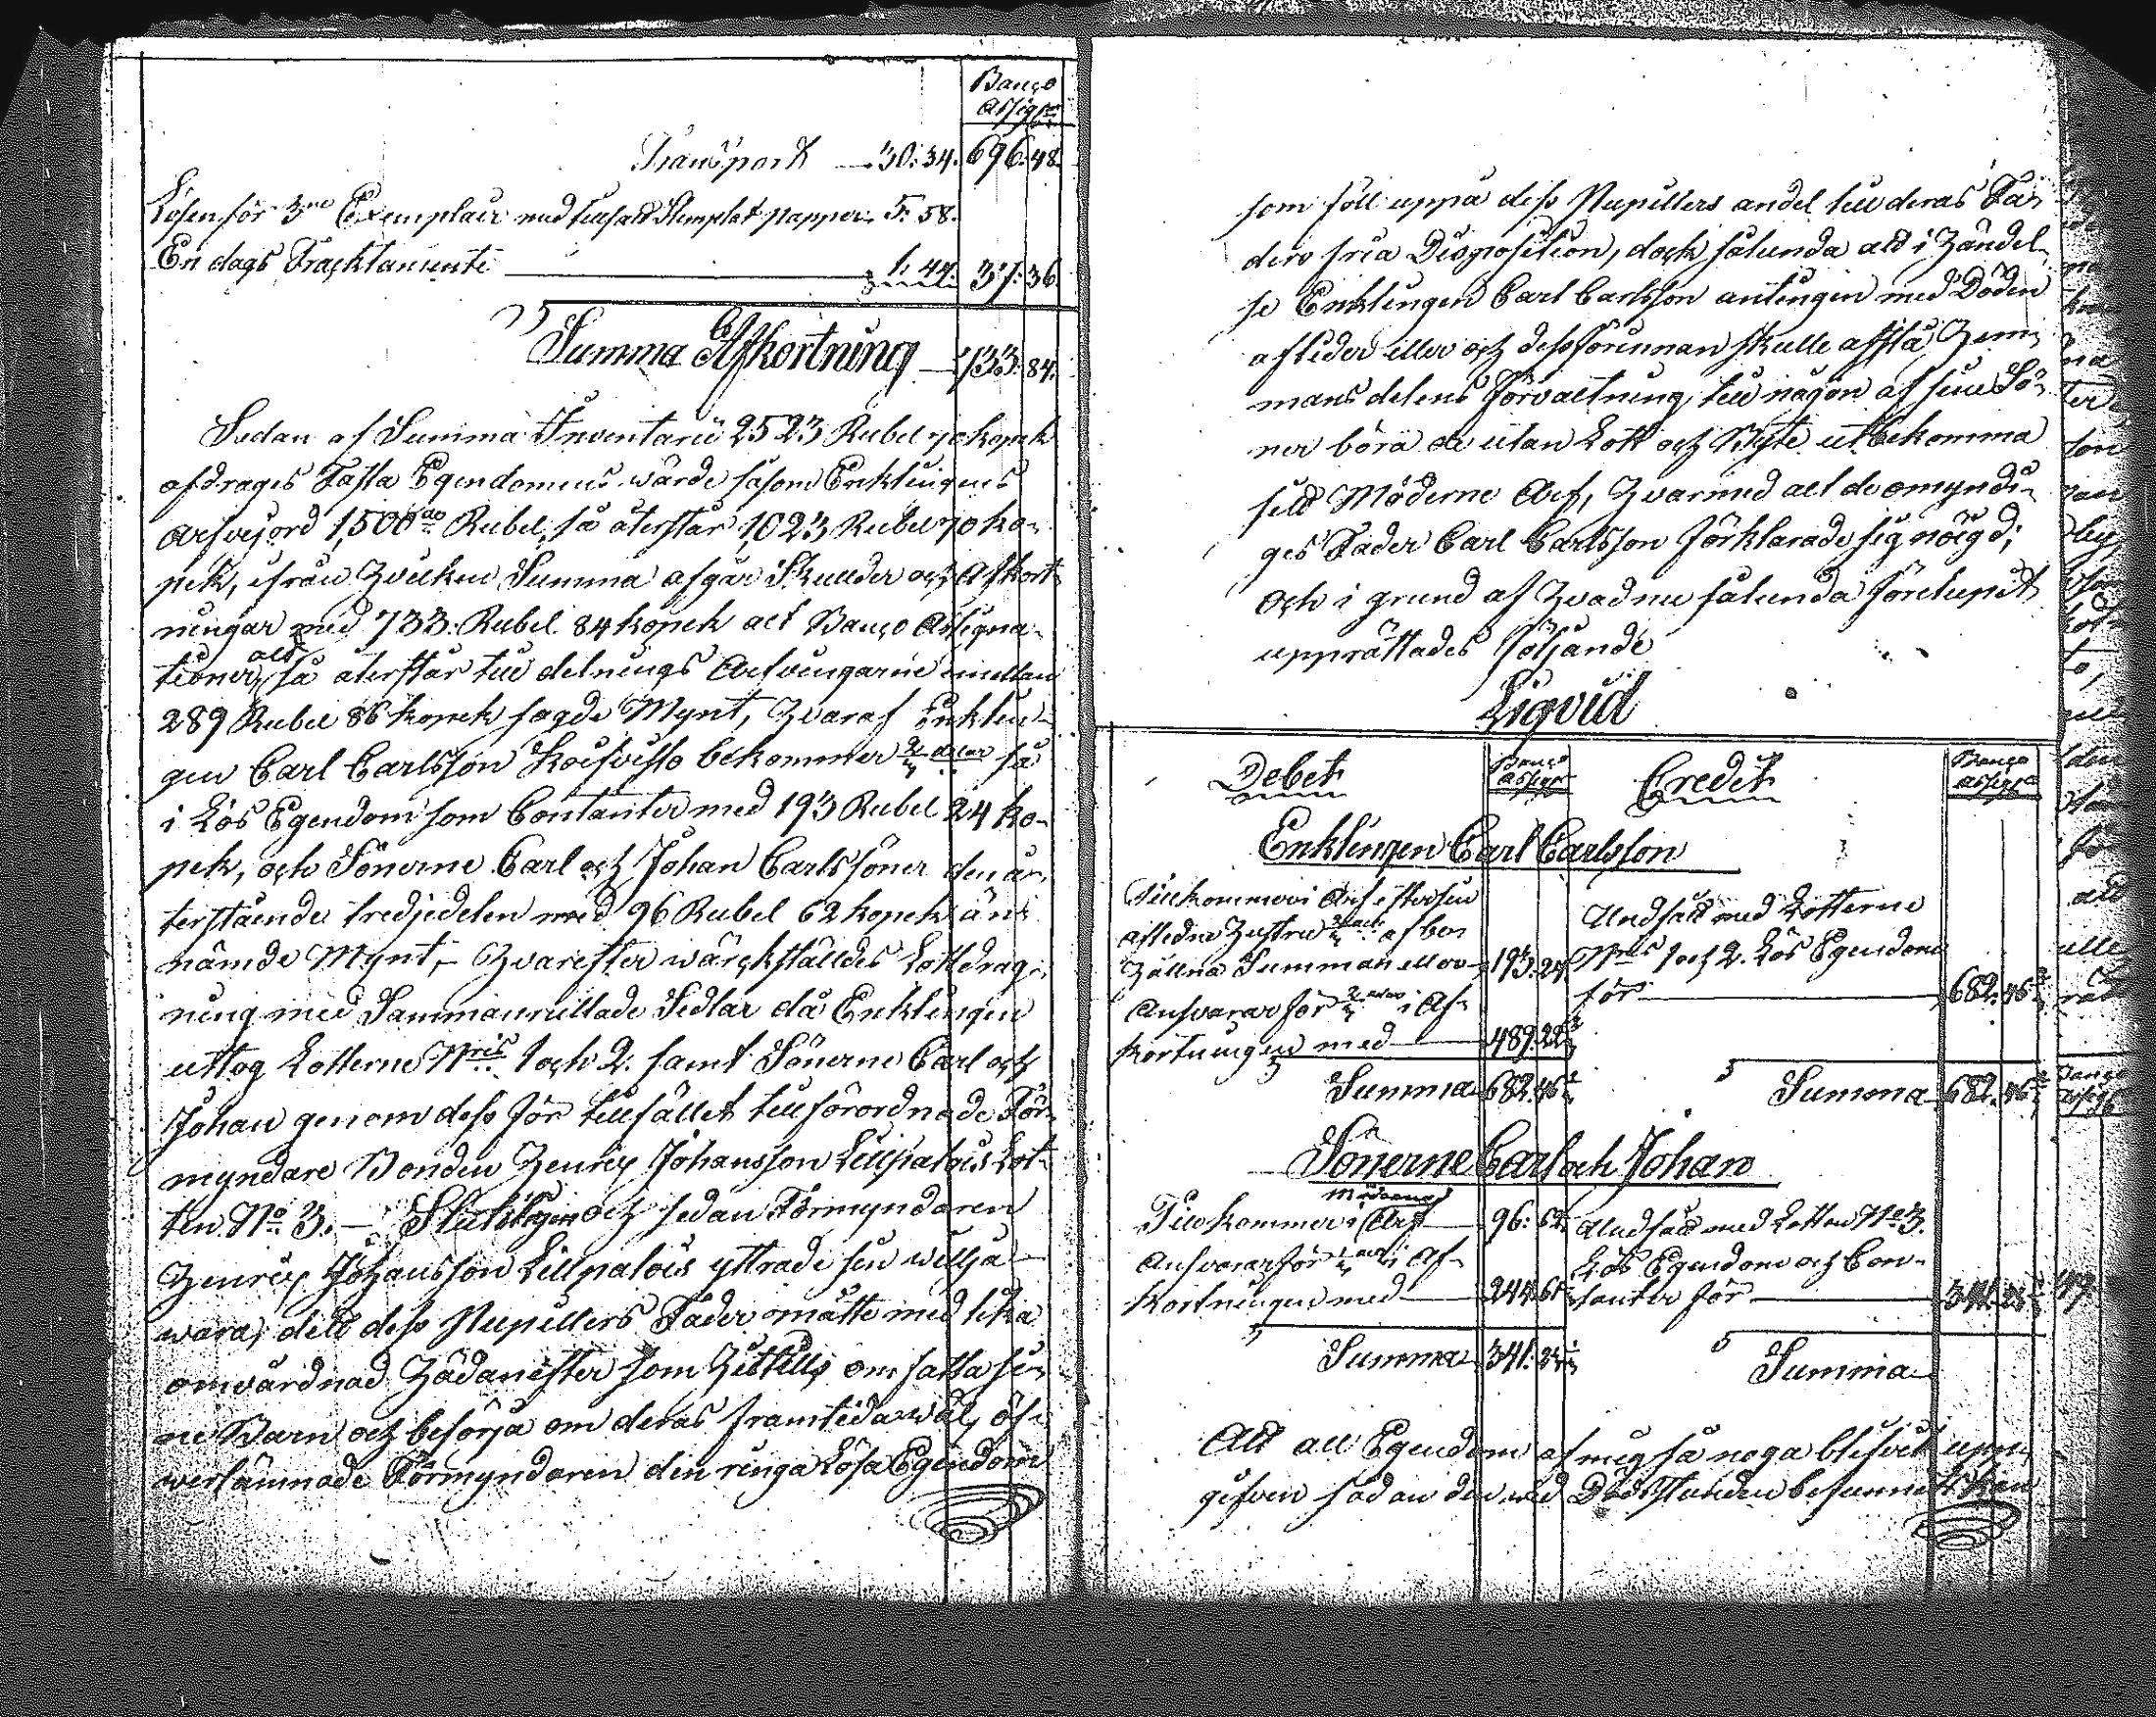 Banço
Assigne
Transport — 30. 34. 696. 48.
Lösen för 3ne Exemplair med tillsatt Stemplat papper 5. 58.
En dags Tracktamente — 1. 44. 37. 36.
Summa Afkortning — 733. 84.
Sedan af Summa Inventarii 2523 Rubel 70 kopek
afdrages Fasta Egendomens wärde såsom Enklingens
Arfvejord 1,500de Rubel, så återstår 1,023 Rubel 70 ko-
pek, ifrån hvilken Summa afgår Skulder och Afkort-
ningar med 733. Rubel 84 kopek alt Banço Assigna-
tioner, altså återstår till delnings Arfvingarne emellan
289 Rubel 86 kopek sagde Mynt, hvaraf Enklin-
gen Carl Carlsson Koifvisto bekommer 2/3 delar så
i Lös Egendom som Contanter med 193 Rubel 24 ko-
pek, och Sönerne Carl och Johan Carlssöner den å-
terstående tredjedelen med 96 Rubel 62 kopek än-
nämde Mynt, — hvarefter wärckställdes Lottdrag-
ning med Sammanrullade Sedlar då Enklingen
uttog Lotterne Nris 1 och 2. samt Sönerne Carl och
Johan genom dess för tillfället tillförordnade För-
myndare Bonden Henric Johansson Lillpalois Lot-
ten No 3. — Slutligen och sedan Förmyndaren
Henric Johansson Lillpalois yttrade sin willja
wara, det dess Pupillers Fader måtte med lika
omvårdnad hädanefter som hittills omfatta si-
ne Barn och besörja om deras framtida wäl, öf-
werlämnade Förmyndaren den ringa Lösa Egendom
som föll uppå dess Pupillers andel till deras Fa-
ders fria Disposition, dock sålunda att i händel-
se Enklingen Carl Carlsson antingen med Döden
aflider eller och dessförinnan skulle afstå Hem-
mans delens förvaltning till någon af sina Sö-
ner böra de utan Lott och Byte utbekomma
sitt Möderne Arf, hvarmed alt de omyndi-
ges Fader Carl Carlsson förklarade sig nöigd;
Och i grund af hvad nu sålunda förelupit
upprättades följande
Liqvid
Debet Banço Assigne Credit Banço Assigne
Enklingen Carl Carlsson
Tillkommer i Arf efter sin
aflidne Hustru 2/3 del af be-
hållna Summan eller — 193. 24
Ansvarar för 2/3 delar i Af-
kortningen med — 489. 22 2/3
Undfått med Lotterne
Nris 1 och 2. Lös Egendom
för — 682. 46 2/3
Summa 682. 46 2/3 Summa 682. 46 2/3
Sönerne Carl och Johan
Möderne
Tillkommer i Arf — 96. 62
Ansvarar för 1/3 del i Af-
kortningen med — 244. 61 1/3
Undfått med Lotten No 3.
Lös Egendom och Con-
tanter för — 341. 23 1/3
Summa 341. 23 1/3 Summa
Att all Egendom af mig så noga blifvit upp-
gifven sådan den wid Dödsstunden befunnits kan